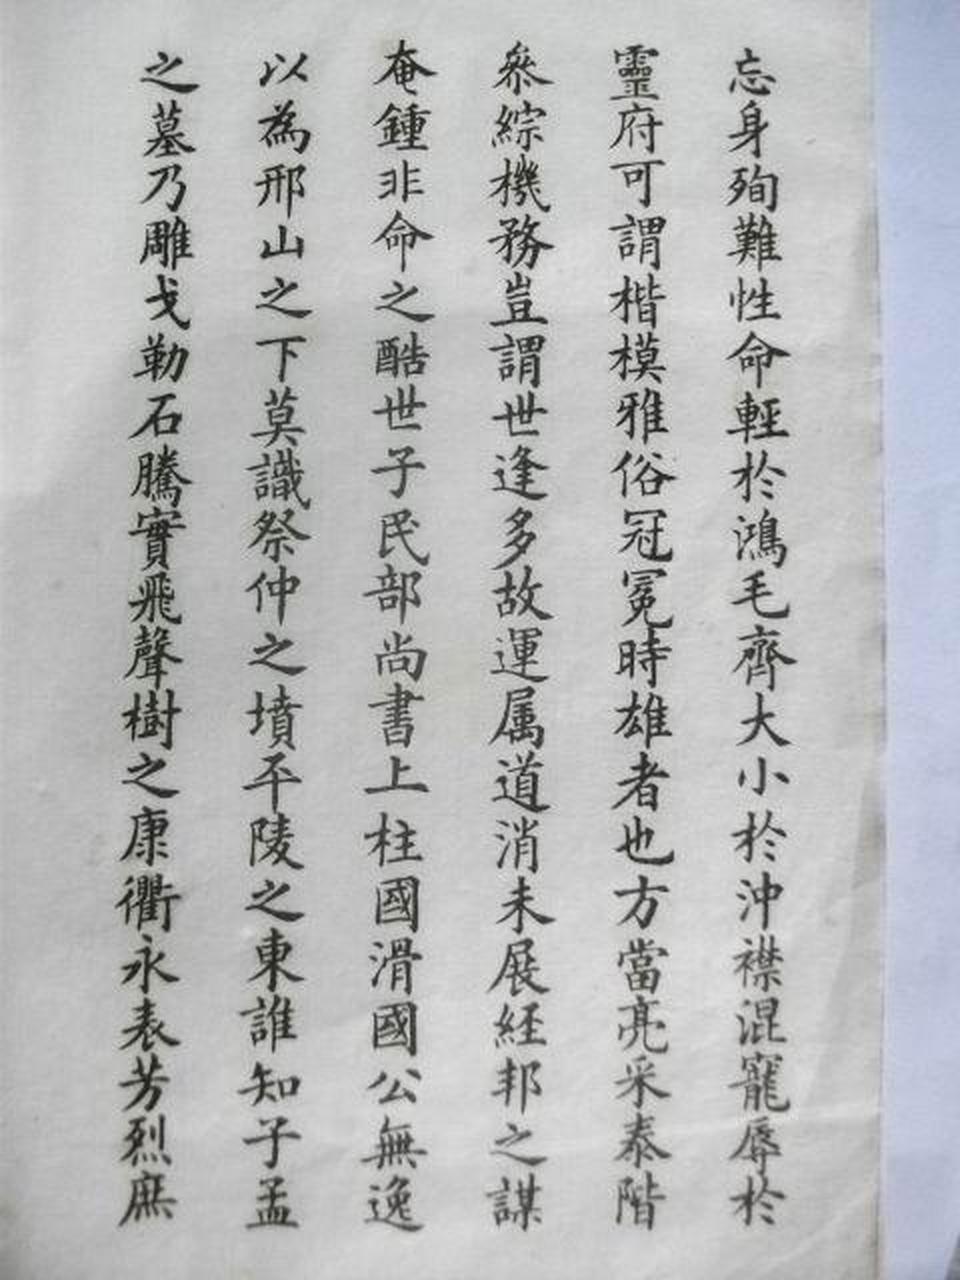 忘身殉難性命輕於鴻毛齊大小於沖襟混寵辱於
靈府可謂楷模雅俗冠冕時雄者也方當亮采泰階
叅綜機務豈謂世逢多故運属道消未展経邦之謀
奄鍾非命之酷世子民部尚書上柱國滑國公無逸
以為邢山之下莫識祭仲之墳平陵之東誰知子孟
之墓乃雕戈勒石騰實飛聲樹之康衢永表芳烈庶